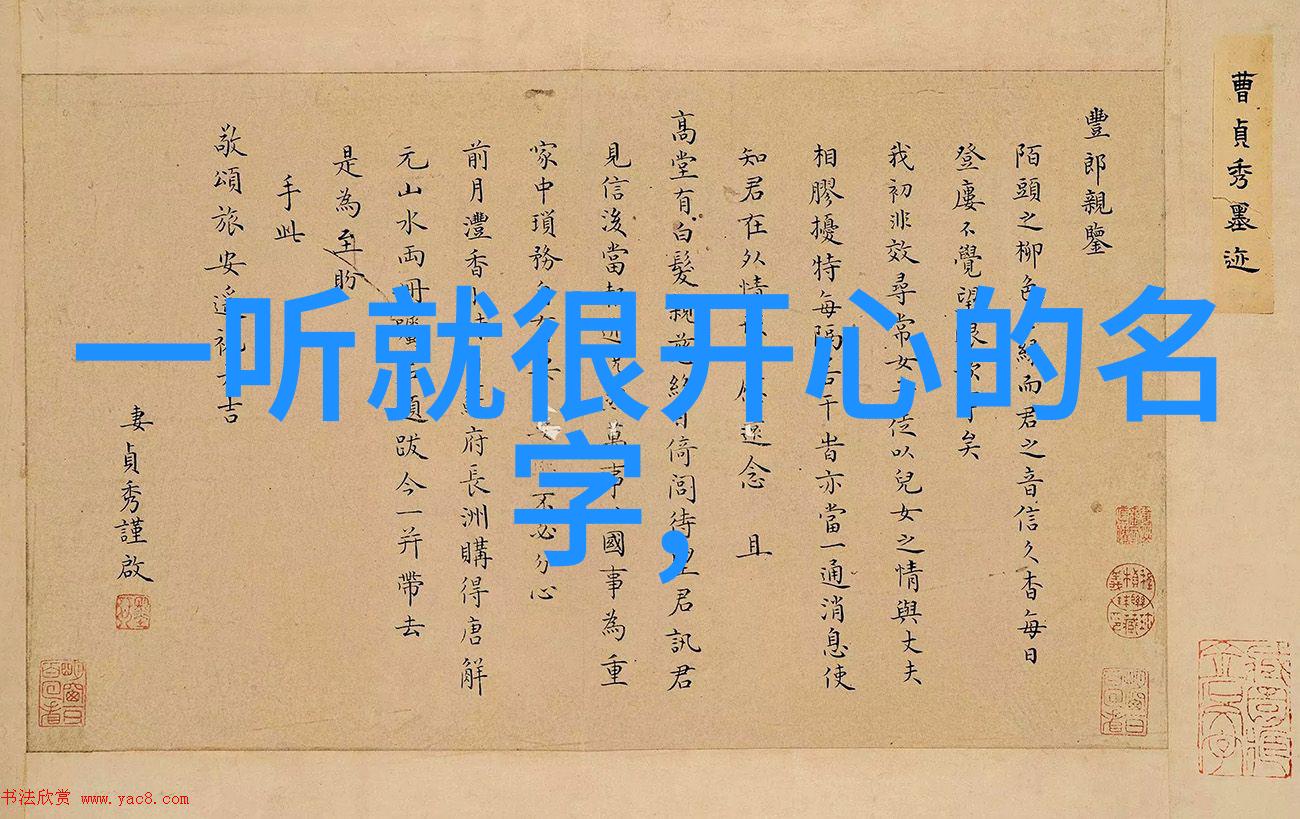 一听就很开心的名
字，
曹貞秀墨迹
豐郎親鑒
陌頭之柳色綠而君之音信久杳每日
登廔不覺望眼欲矣
我初非效尋常女子徒以兒女之情與丈夫
相膠擾特每隔若干昔亦當一通消息使
知君在外情遠念 且
高堂有白髮親終日倚閭待望君訊君
見信後當萬事國事為重
家中瑣務不必分心
前月灃香府長洲購得唐解
元山水兩冊題跋今一并帶去
是為至盼
手此
敬頌旅安遙祝吉
妻貞秀謹啟
书法欣赏 www.yac8.com